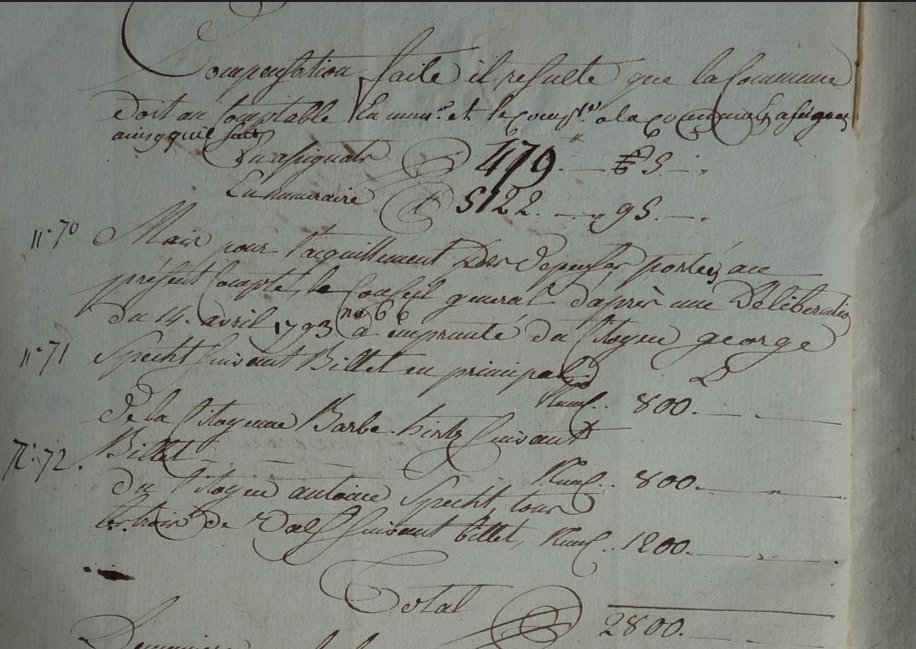 Compensation faite il resulte que la Commune
doit au Comptable En num.e et le Compt. a la Commune En assignats
ainsy qu'il suit
En assignats 479. — 3 —.
En numeraire 5122. — 9s. —.
n.° 70 Mais pour l'aquittement Des depenses portées au
présent Compte, le Conseil general d'aprèr une Déliberation
du 14. avril 1793 n.° 66 a emprunté du Citoyen george
n.° 71 Specht suivant Billet en principal
Num. 800. — .
De la Citoyenne Barbe hirtz suivant
n.° 72. Billet Num. 800. —
du Citoyen antoine Specht, tous
les trois de Dal suivant billet, Num. 1200. —
Total 2800. —